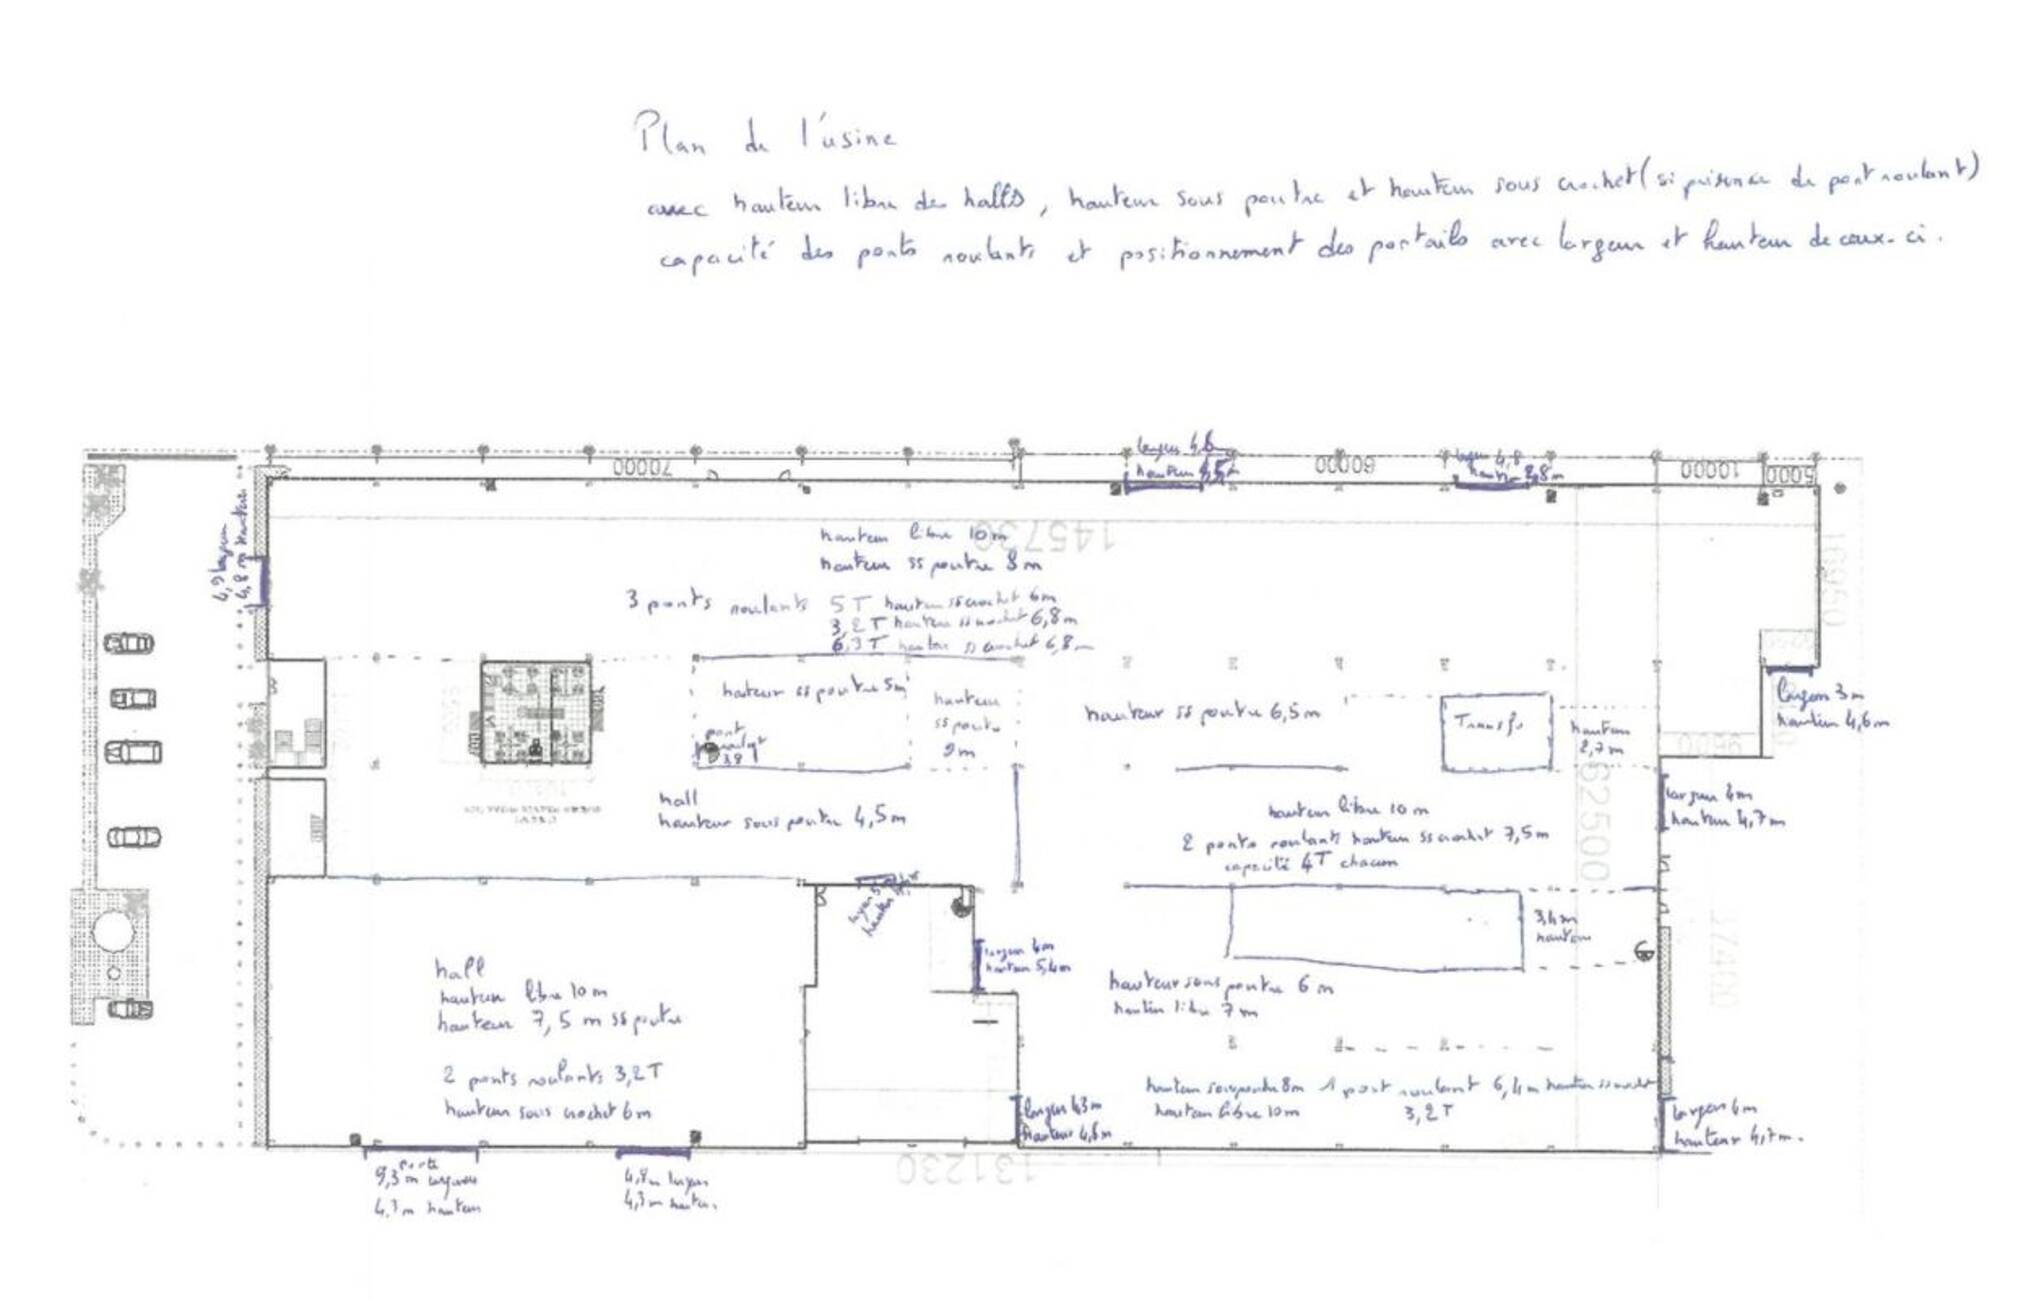 Plan de l'usine
avec hauteur libre des halls, hauteur sous poutre et hauteur sous crochet (si présence de pont roulant)
capacité des ponts roulants et positionnement des portails avec largeur et hauteur de ceux-ci.
largeur 4,6
70000
60000
largeur 4,8
10000
5000
4,9 largeur
4,8 m hauteur
hauteur libre 10 m
145730
hauteur ss poutre 8 m
3 ponts roulants 5T hauteur ss crochet 6m
3,2T hauteur ss crochet 6,8m
6,3T hauteur ss crochet 6,8m
16950
hauteur ss poutre 5m
hauteur
ss poutre
9m
hauteur ss poutre 6,5m
Transfo
hauteur
2,7m
largeur 3m
hauteur 4,6m
pont
9600
hall
hauteur sous poutre 4,5m
largeur 4m
hauteur 4,7m
hauteur libre 10m
2 ponts roulants hauteur ss crochet 7,5m
capacité 4T chacun
62500
3,4m
hauteur
37400
largeur 4m
hauteur 5,4m
hall
hauteur libre 10m
hauteur 7,5 m ss poutre
hauteur sous poutre 6m
hauteur libre 7m
2 ponts roulants 3,2T
hauteur sous crochet 6m
hauteur sous poutre 8m 1 pont roulant 6,4m hauteur ss crochet
hauteur libre 10m 3,2T
largeur 4,3m
hauteur 4,6m
largeur 4m
hauteur 4,7m.
porte
9,3m largeur
4,3m hauteur
4,8m largeur
4,3m hauteur
131230